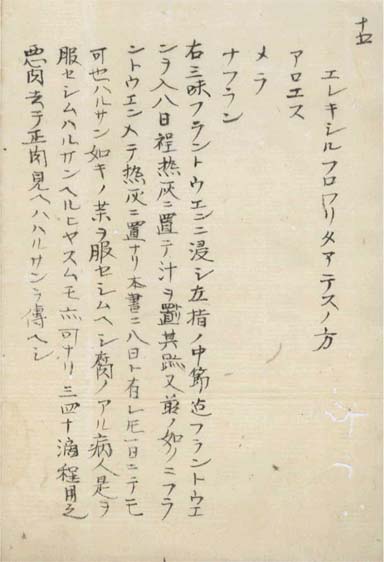 十五
エレキシルフロフリタアテスノ方
アロエス
メラ
ナフラン
右三味フラントウエンニ浸シ左指ノ中節迄フラントウエ
ンヲ入八日程熱灰ニ置テ汁ヲ其跡又前ノ如クニフラ
ントウエン〆テ熱灰ニ置ナリ本書ニ八日ト有レ𪜈一日ニテモ
可也ハルサン如キノ茶ヲ服セシムヘシ腐ノアル病人是ヲ
服セシムハルサンヘルヒヤスムモ亦可ナリ三四十滴程用之
悪肉去テ正肉見ヘハハルサンヲ傅ヘシ